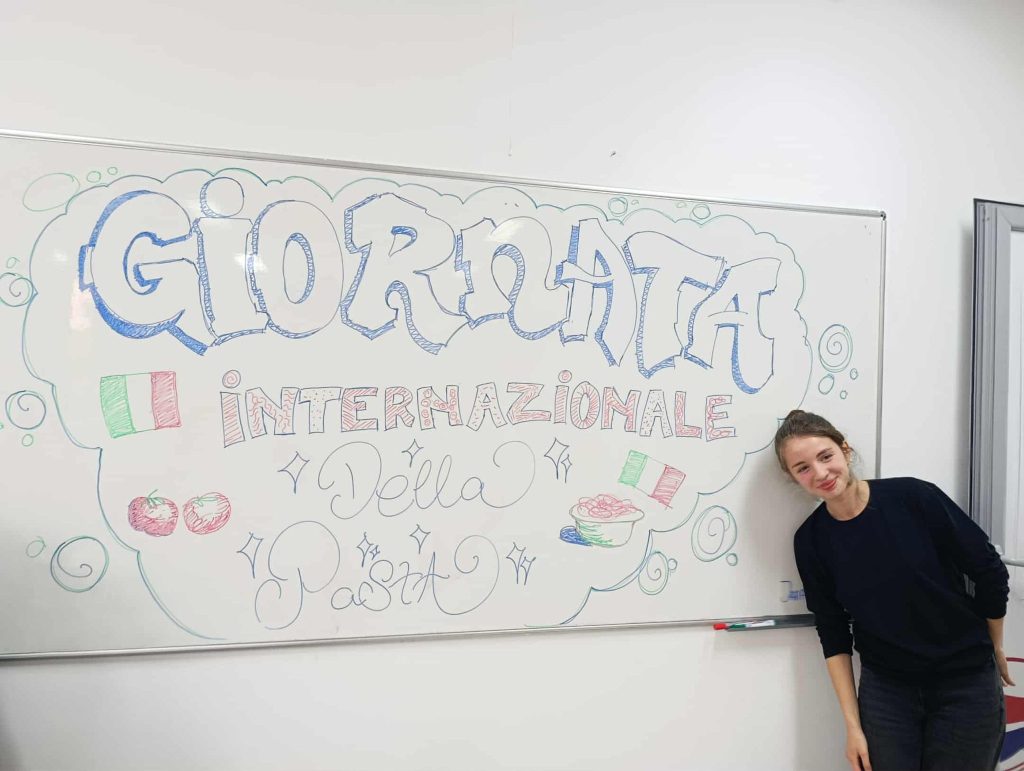 GiORNATA
iNTERNAZiONALE
Della
PaStA